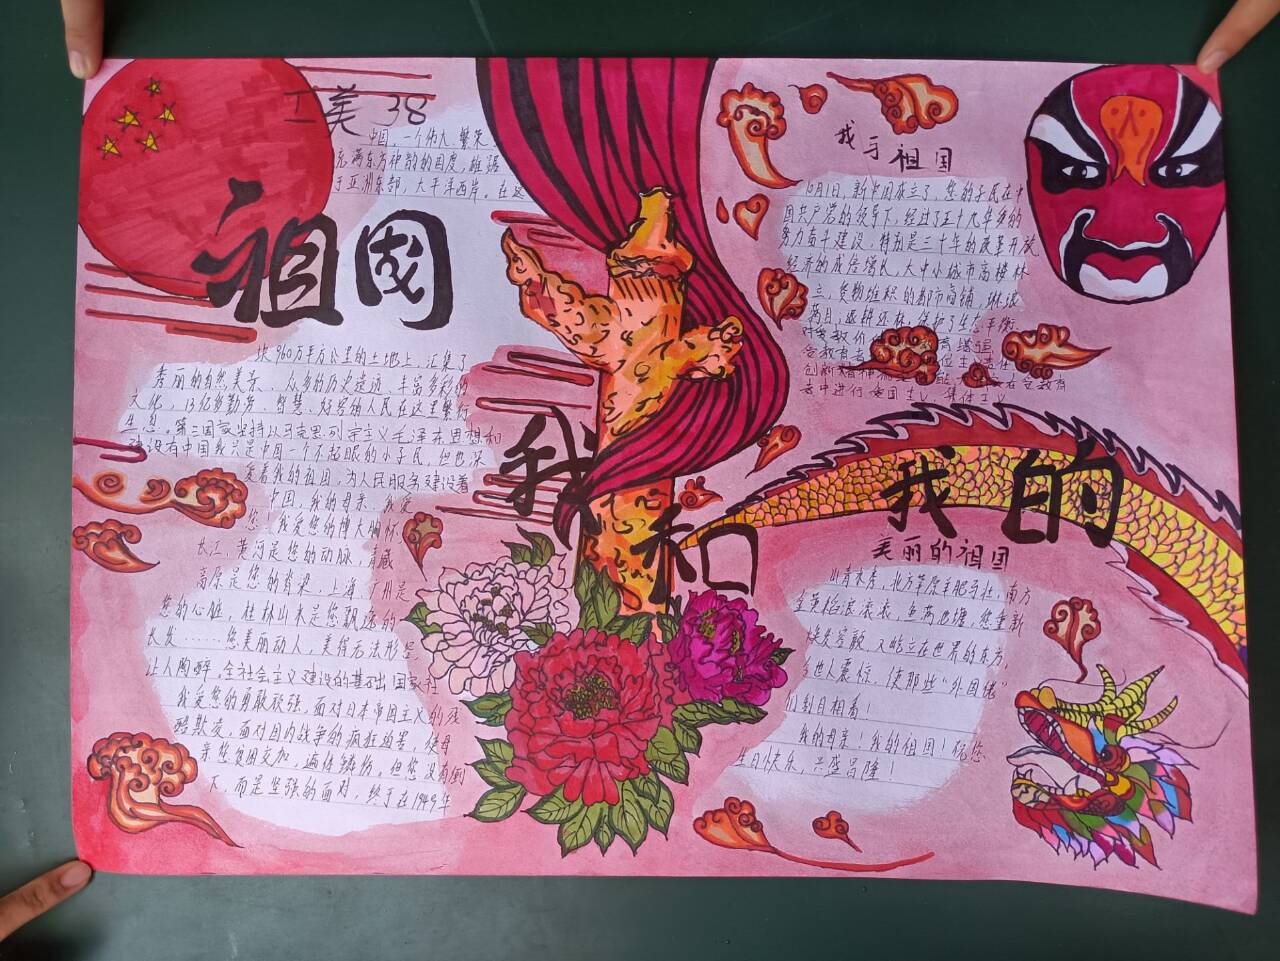 工美38
中国,一个伟大、繁荣、
充满东方神韵的国度,雄踞
于亚洲东部,太平洋西岸。在这
祖国
块960万平方公里的土地上,汇集了
秀丽的自然美景、众多的历史遗迹、丰富多彩的
文化,13亿多勤劳、智慧、好客的人民在这里繁衍
生息。第三国家坚持以马克思列宁主义毛泽东思想和
建设有中国我只是中国一个不起眼的小子民,但也深
爱着我的祖国,为人民服务建设着
中国,我的母亲,我爱
您,我爱您的博大胸怀
长江、黄河是您的动脉,青藏
高原是您的脊梁,上海、广州是
您的心脏,桂林山水是您飘逸的
长发……您美丽动人,美得无法形容,
让人陶醉。全社会主义建设的基础出国家社
我爱您的勇敢顽强。面对日本帝国主义的残
酷欺凌,面对国内战争的疯狂迫害,使母
亲您贫困交加,遍体鳞伤。但您没有倒
下,而是坚强的面对,终于在1949年
我和
我于祖国
10月1日,新中国成立了,您的子民在中
国共产党的领导下,经过了五十九年多的
努力奋斗建设,特别是三十年的改革开放
经济的成倍增长,大中小城市高楼林
立,货物堆积的都市商铺,琳琅
满目;退耕还林,保护了生态平衡.
创新精神
在受教育
者中进行爱国主义、集体主义
我的
美丽的祖国
山青水秀,北方草原羊肥马壮,南方
金黄稻浪滚滚,鱼满池塘,您重新
焕发容颜,又屹立在世界的东方,
他人震惊,使那些“外国佬”
们刮目相看!
我的母亲!我的祖国!祝您
生日快乐,兴盛昌隆!